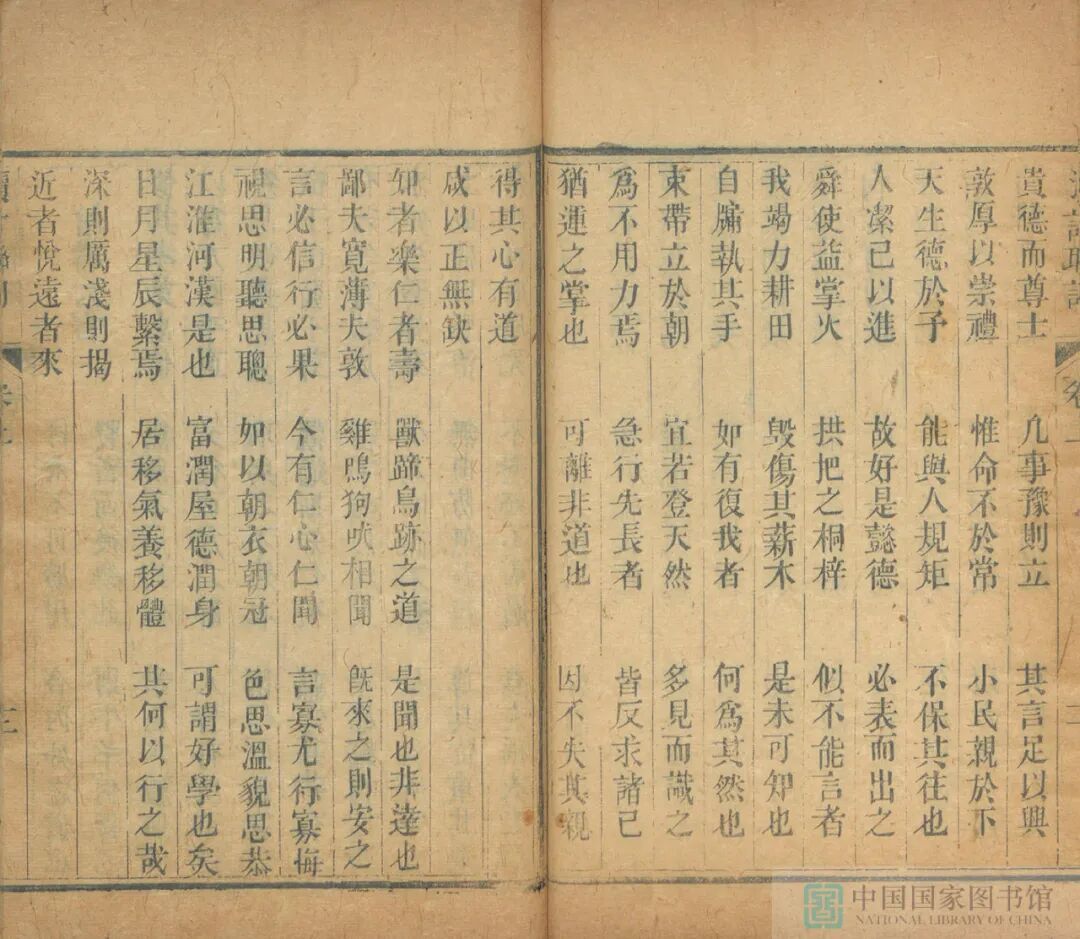 貴德而尊士　凡事豫則立　其言足以興
敦厚以崇禮　惟命不於常　小民親於下
天生德於予　能與人規矩　不保其往也
人潔己以進　故好是懿德　必表而出之
舜使益掌火　拱把之桐梓　似不能言者
我竭力耕田　毀傷其薪木　是未可知也
自牖執其手　如有復我者　何爲其然也
束帶立於朝　宜若登天然　多見而識之
爲不用力焉　急行先長者　皆反求諸己
猶運之掌也　可離非道也　因不失其親
得其心有道
咸以正無缺
知者樂仁者壽　獸蹄鳥跡之道　是聞也非達也
鄙夫寬薄夫敦　雞鳴狗吠相聞　旣來之則安之
言必信行必果　今有仁心仁聞　言寡尤行寡悔
視思明聽思聰　如以朝衣朝冠　色思溫貌思恭
江淮河漢是也　富潤屋德潤身　可謂好學也矣
日月星辰繫焉　居移氣養移體　其何以行之哉
深則厲淺則揭
近者悅遠者來
中国国家图书馆
NATIONAL LIBRARY OF CHINA